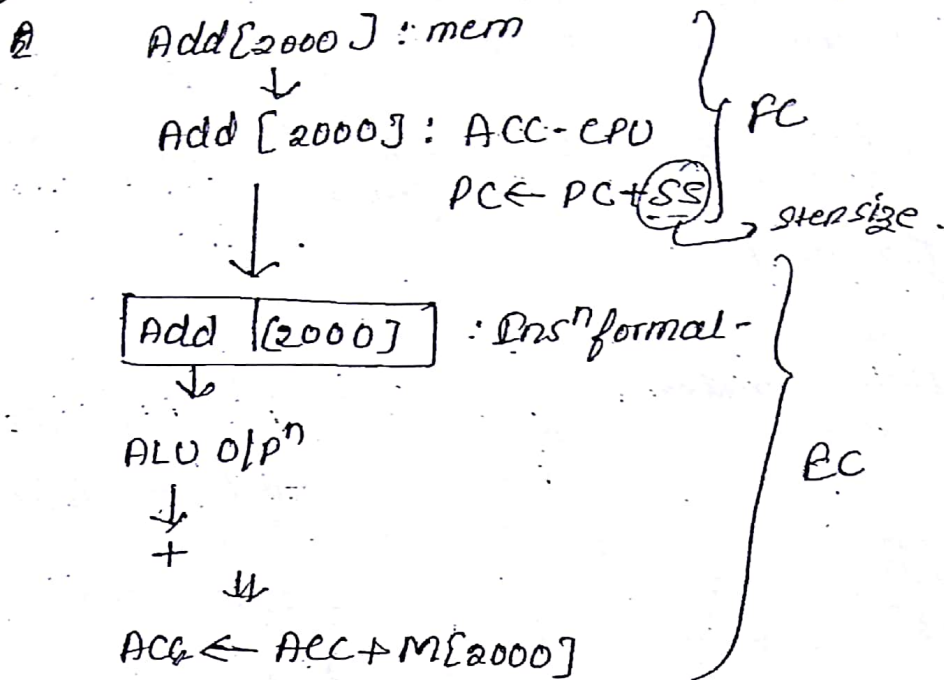 Add[2000] : mem
↓
Add [2000] : ACC-CPU
PC ← PC+SS
FC
step size.
Add [2000] : Insⁿ format-
↓
ALU O/Pⁿ
↓
+
⇓
EC
ACC ← ACC+M[2000]